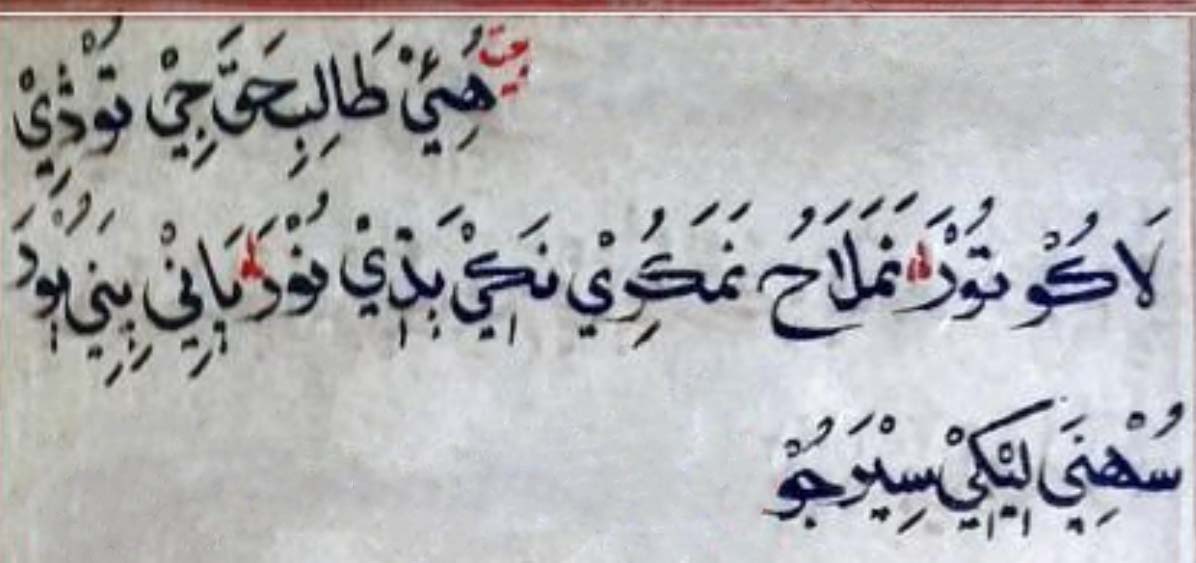 بيت هُئِيْ طَالِبِ حَقَّ جِيْ تُوْڎِيْ
لَاكُو تُوْرَ نَمَلَاحُ نَمَكُرِيْ نَكَيْ بَڎِيْ نُوْرَ پَانِيْ پِنِيَ پُوْرَ
سُهْنِيَ لِيْكِيْ سِيْرَ جُوْ